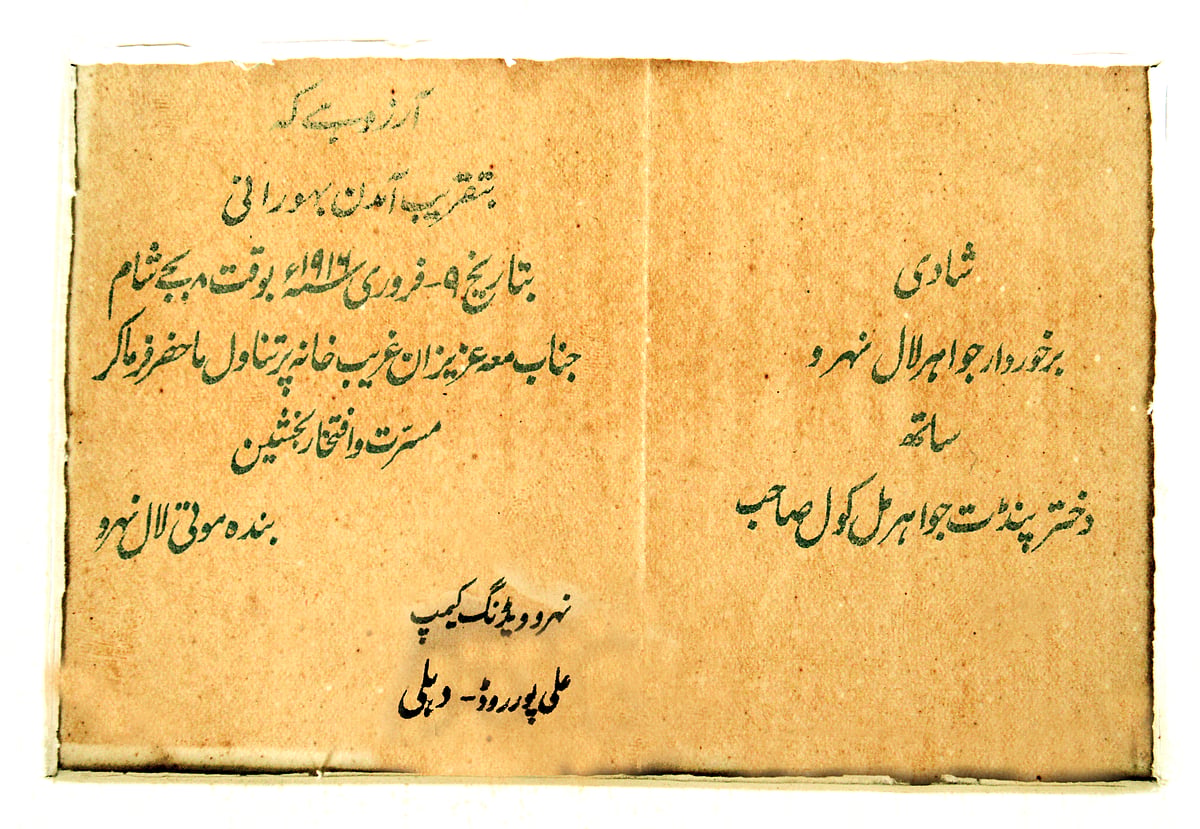 شادی
برخوردار جواہر لال نہرو
ساتھ
دختر پنڈت جواہر مل کول صاحب
آرزو ہے کہ
بتقریب آمدن بہو رانی
بتاریخ ۹ - فروری سنہ ۱۹۱۶ء بوقت ۸ بجے شام
جناب معہ عزیزان غریب خانہ پر تناول ماحضر فرما کر
مسرّت و افتخار بخشیں
بندہ موتی لال نہرو
نہرو ویڈنگ کیمپ
علی پور روڈ - دہلی